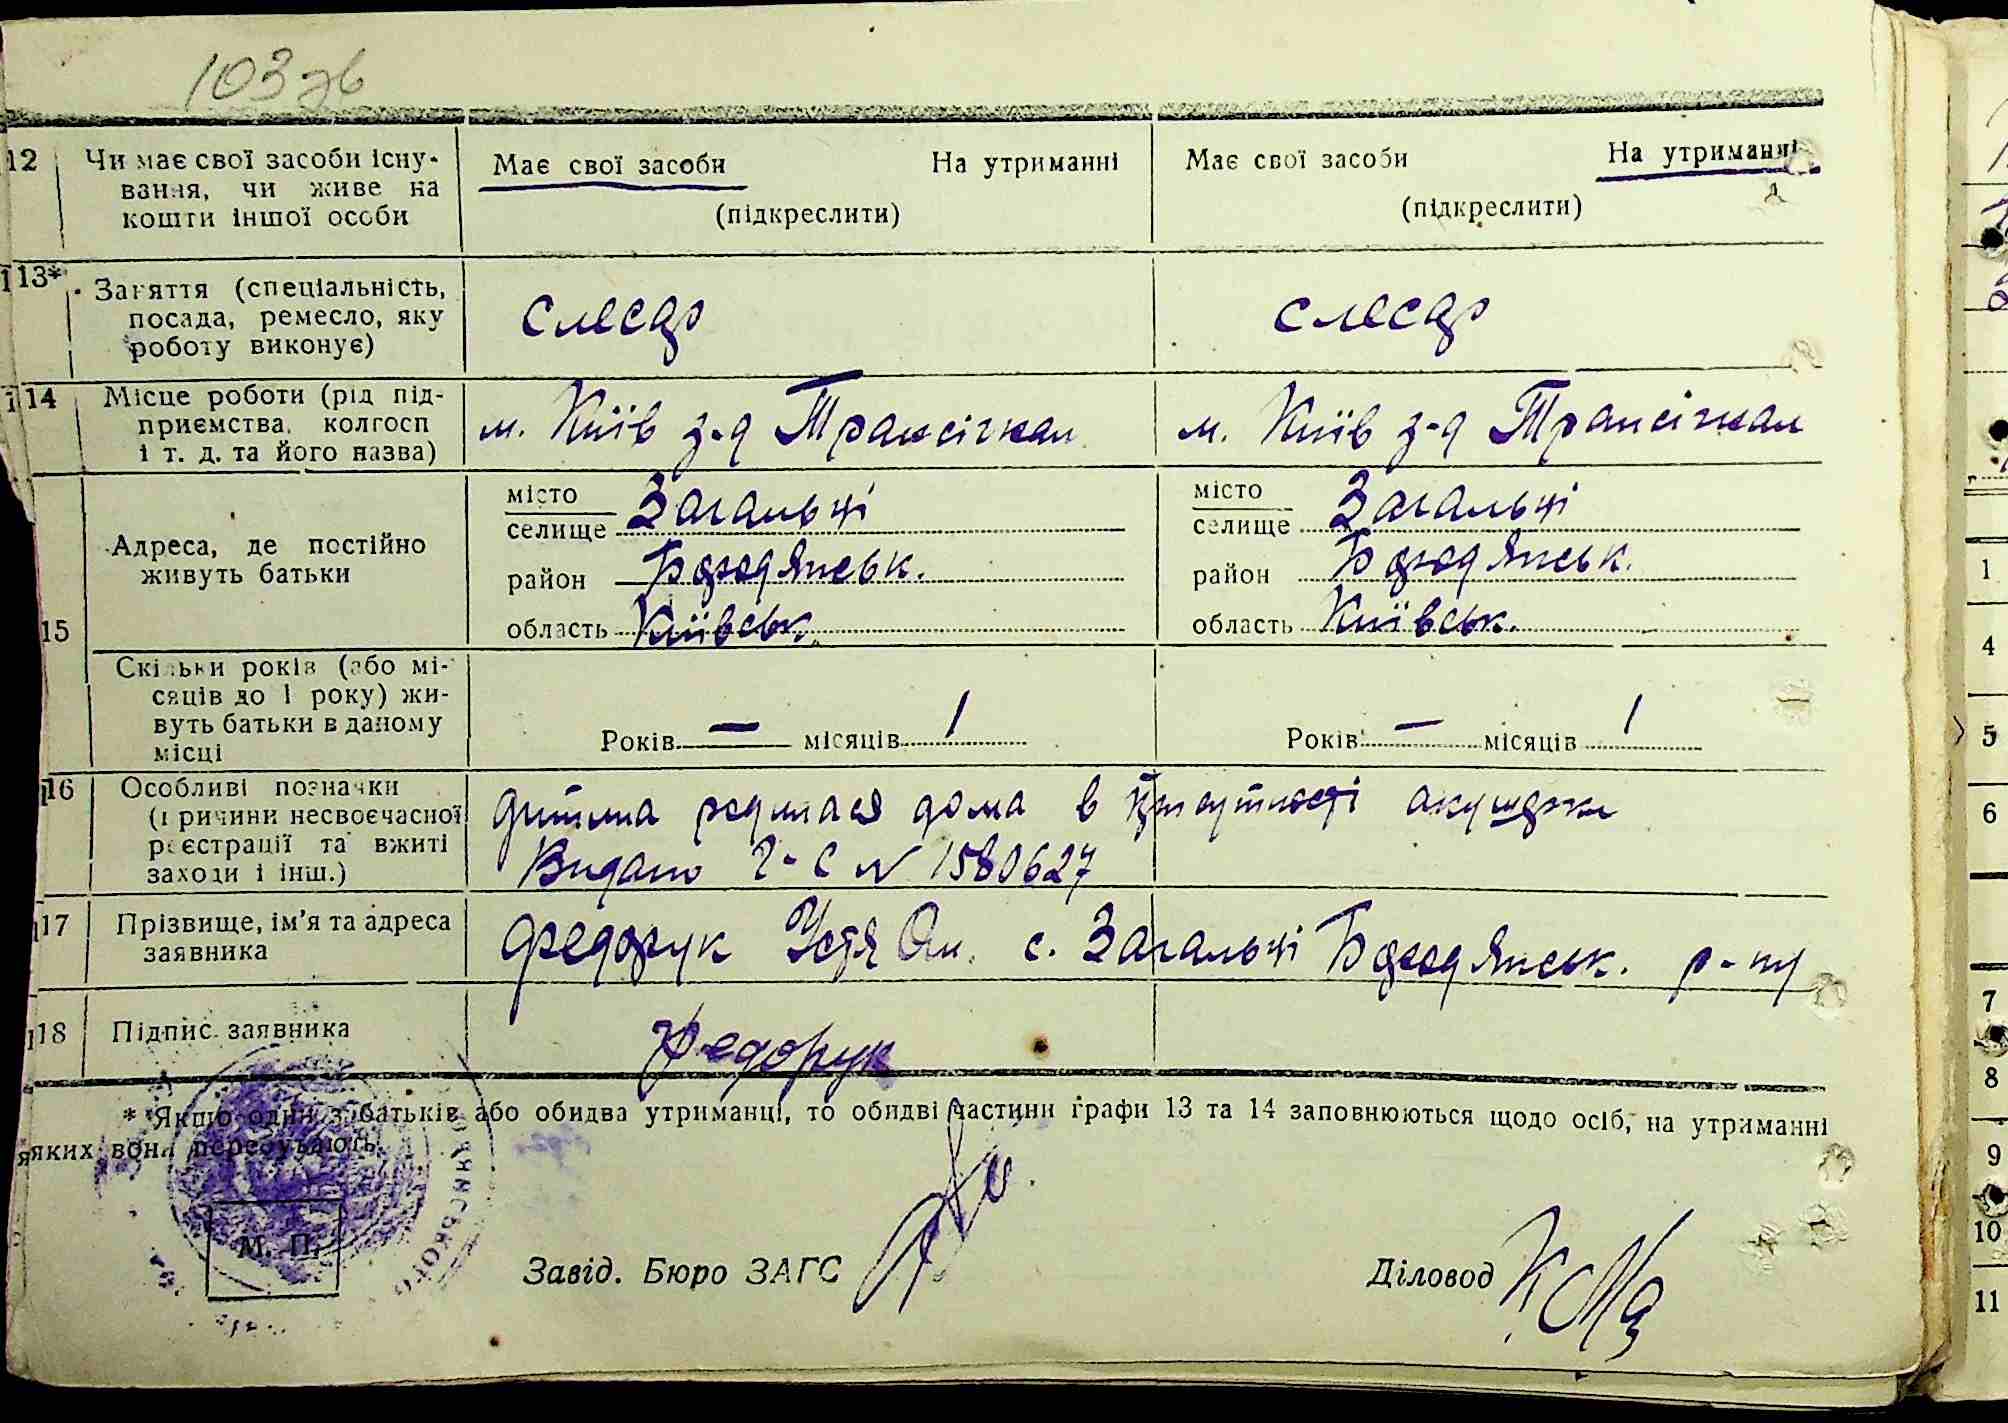 103 зв
12 Чи має свої засоби існу-
вання, чи живе на
кошти іншої особи
Має свої засоби На утриманні
(підкреслити)
Має свої засоби На утриманні
(підкреслити)
13* Заняття (спеціальність,
посада, ремесло, яку
роботу виконує)
слесар
слесар
14 Місце роботи (рід під-
приємства, колгосп
і т. д. та його назва)
м. Київ з-д Транссігнал
м. Київ з-д Трансігнал
15
Адреса, де постійно
живуть батьки
місто
селище Загальці
район Бородянськ.
область Київськ.
місто
селище Загальці
район Бородянськ.
область Київськ.
Скільки років (або мі-
сяців до 1 року) жи-
вуть батьки в даному
місці
Років — місяців 1
Років — місяців 1
16 Особливі позначки
(причини несвоєчасної
реєстрації та вжиті
заходи і інш.)
дитина родилася дома в присутності акушерки
Видано № 1580627
17 Прізвище, ім'я та адреса
заявника
Федорук Устя Ол. с. Загальці Бородянськ. р-ну
18 Підпис заявника
Федорук
* Якщо один з батьків або обидва утриманці, то обидві частини графи 13 та 14 заповнюються щодо осіб, на утриманні
яких вони перебувають.
М. П.
Завід. Бюро ЗАГС
Діловод
1
4
5
6
7
8
9
10
11